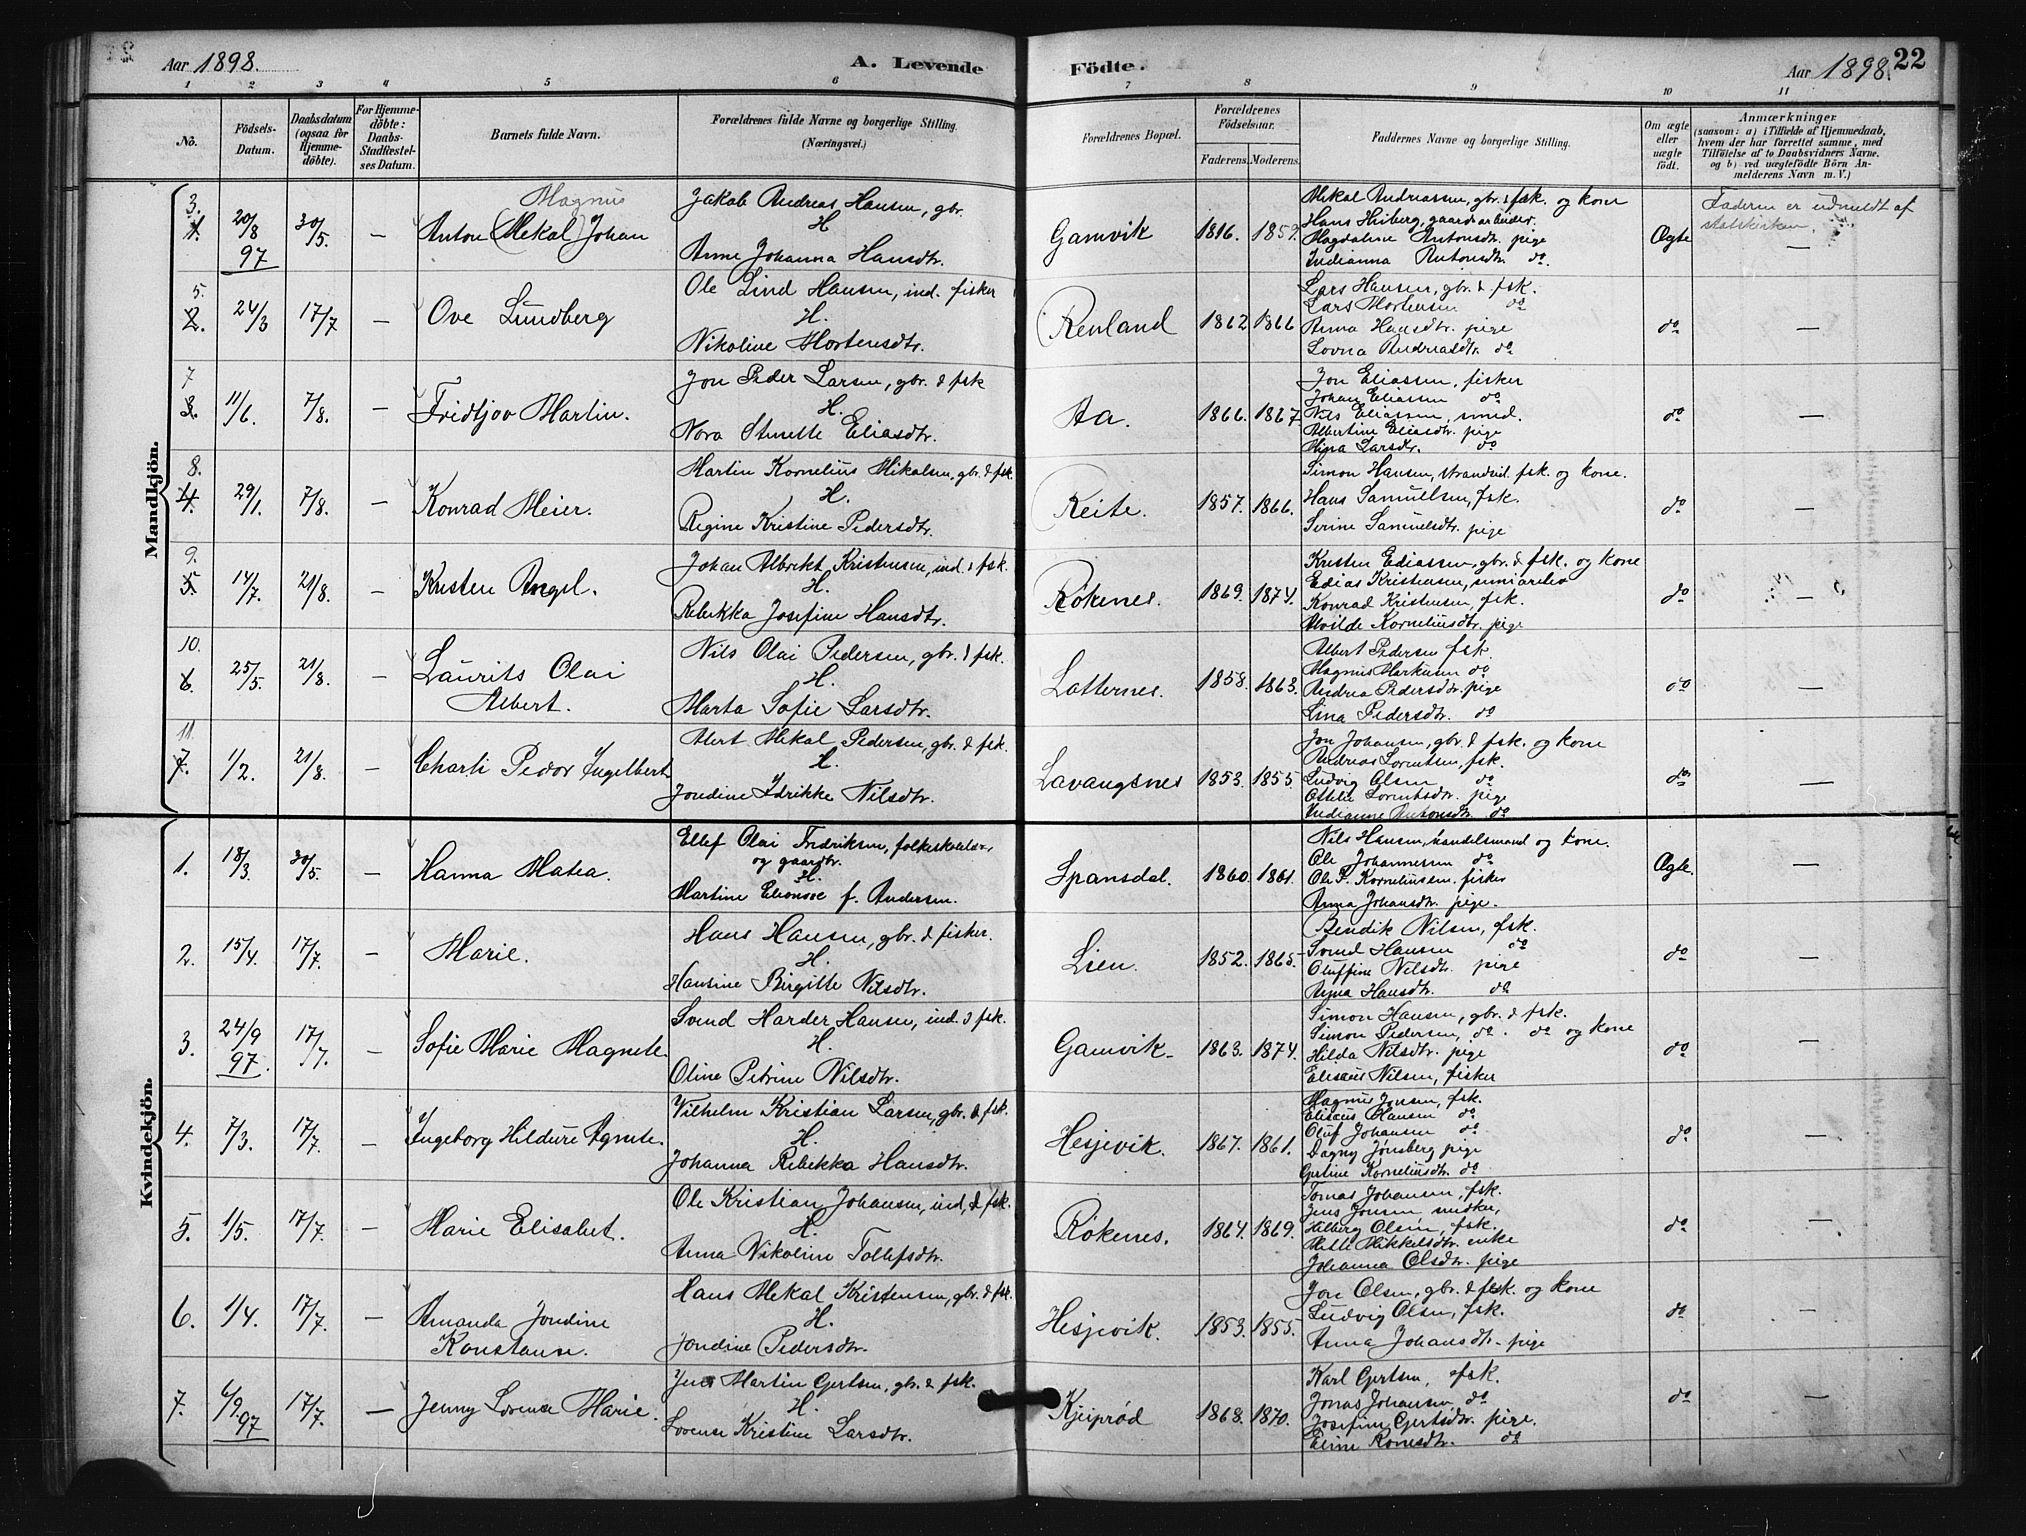 Aar 1898. A. Levende Födte. Aar 1898. 22
1 2 3 4 5 6 7 8 9 10 11
No.
Födsels-Datum.
Daabsdatum (ogsaa for Hjemme-döbte).
For Hjemme-döbte: Daabs-Stadfæstelses Datum.
Barnets fulde Navn.
Forældrenes fulde Navne og borgerlige Stilling. (Næringsvei.)
Forældrenes Bopæl.
Forældrenes Födselsaar.
Faderens. Moderens.
Faddernes Navne og borgerlige Stilling.
Om ægte eller uægte födt.
Anmærkninger
(saasom: a) i Tilfælde af Hjemmedaab, hvem der har forrettet samme, med Tilföielse af to Daabsvidners Navne, og b) ved uægtefödte Börn Anmelderens Navn m. V.)
Mandkjön.
3. 1. 20/8 97 30/5. — Magnus
Anton (Mekal) Johan
Jakob Andreas Hansen, gbr.
H
Anne Johanna Hansdtr.
Gamvik 1816. 1857.
Mekal Andreassen, gbr. & fsk. og kone
Hans Hiberg, gaardsarbeider.
Magdalene Antonsdtr. pige
Indianna Antonsdtr. do.
Ægte
Faderen er udmeldt af
statskirken.
—
5. 2. 24/3 17/7 — Ove Lundberg
Ole Lind Hansen, ind. fisker
H.
Nikoline Mortensdtr.
Renland 1862. 1866
Lars Hansen, gbr. & fsk.
Lars Mortensen do
Anna Hansdtr. pige
Lovna Andreasdtr. do
do —
7 3. 11/6. 7/8. — Fridtjov Martin.
Jon Peder Larsen, gbr. & fsk
H.
Nora Stinette Eliasdtr.
Aa. 1866. 1867
Jon Eliassen, fisker
Johan Eliassen do
Nils Eliassen, smed.
Albertine Eliasdtr. pige
Mina Larsdtr. do
do —
8. 4. 29/1. 7/8. — Konrad Meier.
Martin Kornelius Mikalsen, gbr. & fsk.
H.
Regine Kristine Pedersdtr.
Reite. 1857. 1866.
Simon Hansen, strandsid. fsk. og kone.
Hans Samuelsen, fsk.
Serine Samuelsdtr. pige
do —
9. 5. 14/7. 21/8. — Kristen Angel.
Johan Albrikt Kristensen, ind. & fsk.
H.
Rebekka Josefine Hansdtr.
Røkenes. 1869. 1874.
Kristen Ediassen, gbr. & fsk. og kone
Edias Kristensen, seminarelev
Konrad Kristensen, fsk.
Alvilde Korneliusdtr. pige
do —
10. 6. 25/5. 21/8. — Laurits Olai
Albert.
Nils Olai Pedersen, gbr. & fsk.
H.
Marta Sofie Larsdtr.
Latternes. 1858. 1863.
Albert Pedersen fsk.
Magnus Markusen do
Andrea Pedersdtr. pige
Lina Pedersdtr. do
do —
11. 7. 1/2. 21/8. — Charli Peder Ingelbert
Mert Mekal Pedersen, gbr. & fsk.
H.
Jondine Idrikke Nilsdtr.
Lavangsnes 1853. 1855.
Jon Johansen, gbr. & fsk. og kone
Andreas Lorentsen, fsk.
Ludvig Olsen do
Ottelie Lorentsdtr. pige
Indianne Antonsdtr. do
do —
Kvindekjön.
1. 18/3. 30/5. — Hanna Matea.
Ellef Olai Fredriksen, folkeskolelær.,
og gaardbr.
H.
Martine Eleonore f. Andersen.
Spansdal. 1860. 1861.
Nils Hansen, handelsmand og kone.
Ole Johannesen do
Ole P. Korneliussen, fisker
Anna Johansdtr. pige.
Ægte. —
2. 15/4. 17/7. — Marie.
Hans Hansen, gbr. & fisker.
H.
Hansine Birgitte Nilsdtr.
Lien. 1852. 1865.
Bendik Nilsen, fsk.
Svend Hansen do
Oluffine Nilsdtr. pige
Anna Hansdtr. do
do —
3. 24/9 97. 17/7. — Sofie Marie Magnete.
Svend Harder Hansen, ind. & fsk.
H.
Oline Petrine Nilsdtr.
Gamvik. 1863. 1874.
Simon Hansen, gbr. & fsk.
Simon Pedersen, do. do og kone
Hilda Nilsdtr. pige
Eliseus Nilsen, fisker
do —
4. 7/3. 17/7. — Ingeborg Hildure Agnete.
Vilhelm Kristian Larsen, gbr. & fsk.
H.
Johanna Rebekka Hansdtr.
Hesjevik. 1867. 1861.
Magnus Jonsen, fsk.
Eliseus Hansen do
Oluf Johansen do
Dagny Jønsberg pige
Gertine Korneliusdtr. do
do —
5. 1/5. 17/7. — Marie Elisabet.
Ole Kristian Johansen, ind. & fsk.
H.
Anna Nikoline Tollefsdtr.
Røkenes. 1864. 1869.
Tomas Johansen, fsk.
Jens Jonsen snedker,
Hilberg Olsen, fsk.
Mette Mikkelsdtr. enke
Johanna Olsdtr. pige
do —
6. 1/4. 17/7. — Amanda Jondine
Konstanse.
Hans Mekal Kristensen, gbr. & fsk.
H.
Jondine Pedersdtr.
Hesjevik. 1853. 1855.
Jon Olsen, gbr. & fsk. og kone
Ludvig Olsen, fsk.
Anna Johansdtr. pige
do —
7. 6/9. 97 17/7. — Jenny Lorense Marie.
Jens Martin Gertsen, gbr. & fsk.
H.
Lorense Kristine Larsdtr.
Kjeiprød 1868. 1870.
Karl Gertsen, fsk.
Jonas Johansen, do
Josefine Gertsdtr. pige.
Eline Konesdtr. do
do —